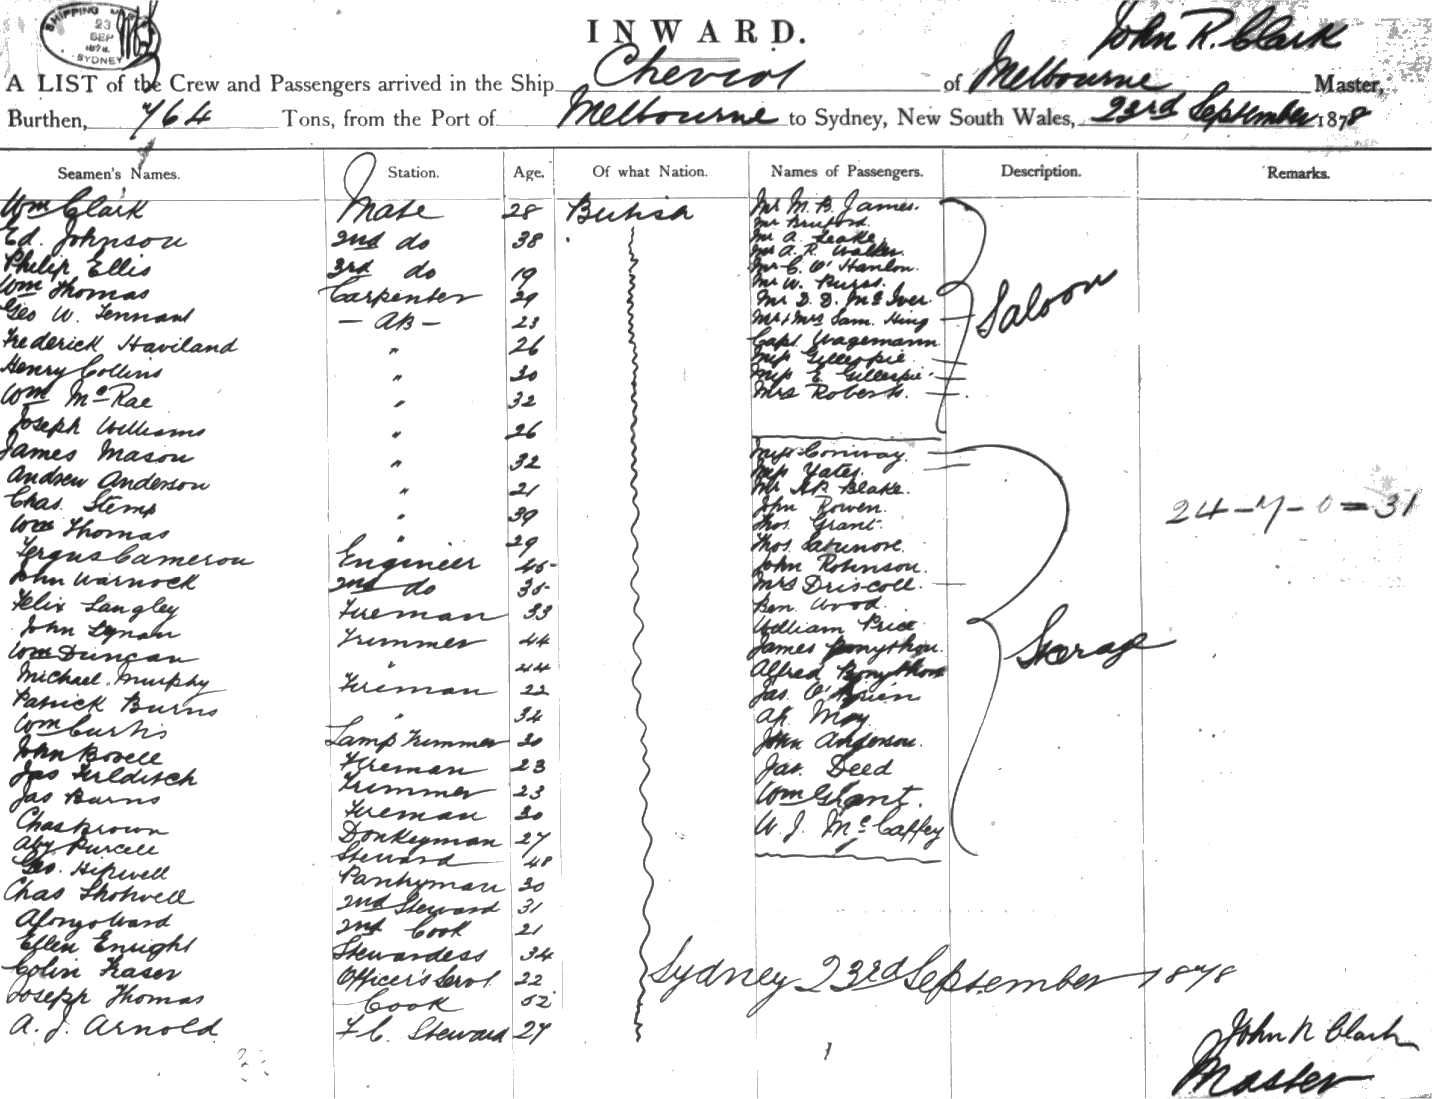 SHIPPING
23
SEP
1878
SYDNEY
INWARD.
John R. Clark
A LIST of the Crew and Passengers arrived in the Ship Cheviot of Melbourne Master,
Burthen, 764 Tons, from the Port of Melbourne to Sydney, New South Wales, 23rd September 1878
Seamen's Names. Station. Age. Of what Nation. Names of Passengers. Description. Remarks.
Wm Clark Mate 28 British
Ed. Johnson 2nd do 38
Philip Ellis 3rd do 19
Wm Thomas Carpenter 29
Geo W. Tennant — AB — 23
Frederick Haviland " 26
Henry Collins " 30
Wm McRae " 32
Joseph Williams " 26
James Mason " 32
Andrew Anderson " 21
Chas. Stemp " 39
Wm Thomas " 29
Fergus Cameron Engineer 45
John Warnock 2nd do 35
Felix Langley Fireman 33
John Lynam Trimmer 44
Wm Duncan " 44
Michael Murphy Fireman 22
Patrick Burns " 34
Wm Curtis Lamp Trimmer 30
John Bovell Fireman 23
Jas Trimmer 23
Jas Burns Fireman 30
Chas Brown Donkeyman 27
Aby Purcell Steward 48
Geo. Hipwell Pantryman 30
Chas Shotwell 2nd Steward 31
Alfonzo Ward 2nd Cook 21
Ellen Enright Stewardess 34
Colin Fraser Officer's Servt 22
Joseph Thomas Cook 52
A. J. Arnold F C. Steward 27
Mr M. B. James.
Mr Bruford.
Mr A. Leake.
Mr A. R. Walker.
Mr C. O'Hanlon.
Mr W.
Mr D. D. McIver.
Mr & Mrs Sam. King
Capt. Wagemann
Miss Gillespie
Miss E. Gillespie
Mrs Roberts.
Saloon
Miss Conway.
Miss Yates.
Mr Blake.
John Rowen.
Thos Grant.
Thos
John Robinson.
Mrs Driscoll.
Ben Wood.
William Price
James Bonython.
Alfred Bonython
Jas. O'Brien
Ah Moy
John Anderson.
Jas. Deed
Wm Grant.
W. J. McCaffey
Sterage
24 — 7 — 0 = 31
Sydney 23rd September 1878
John R Clark
Master